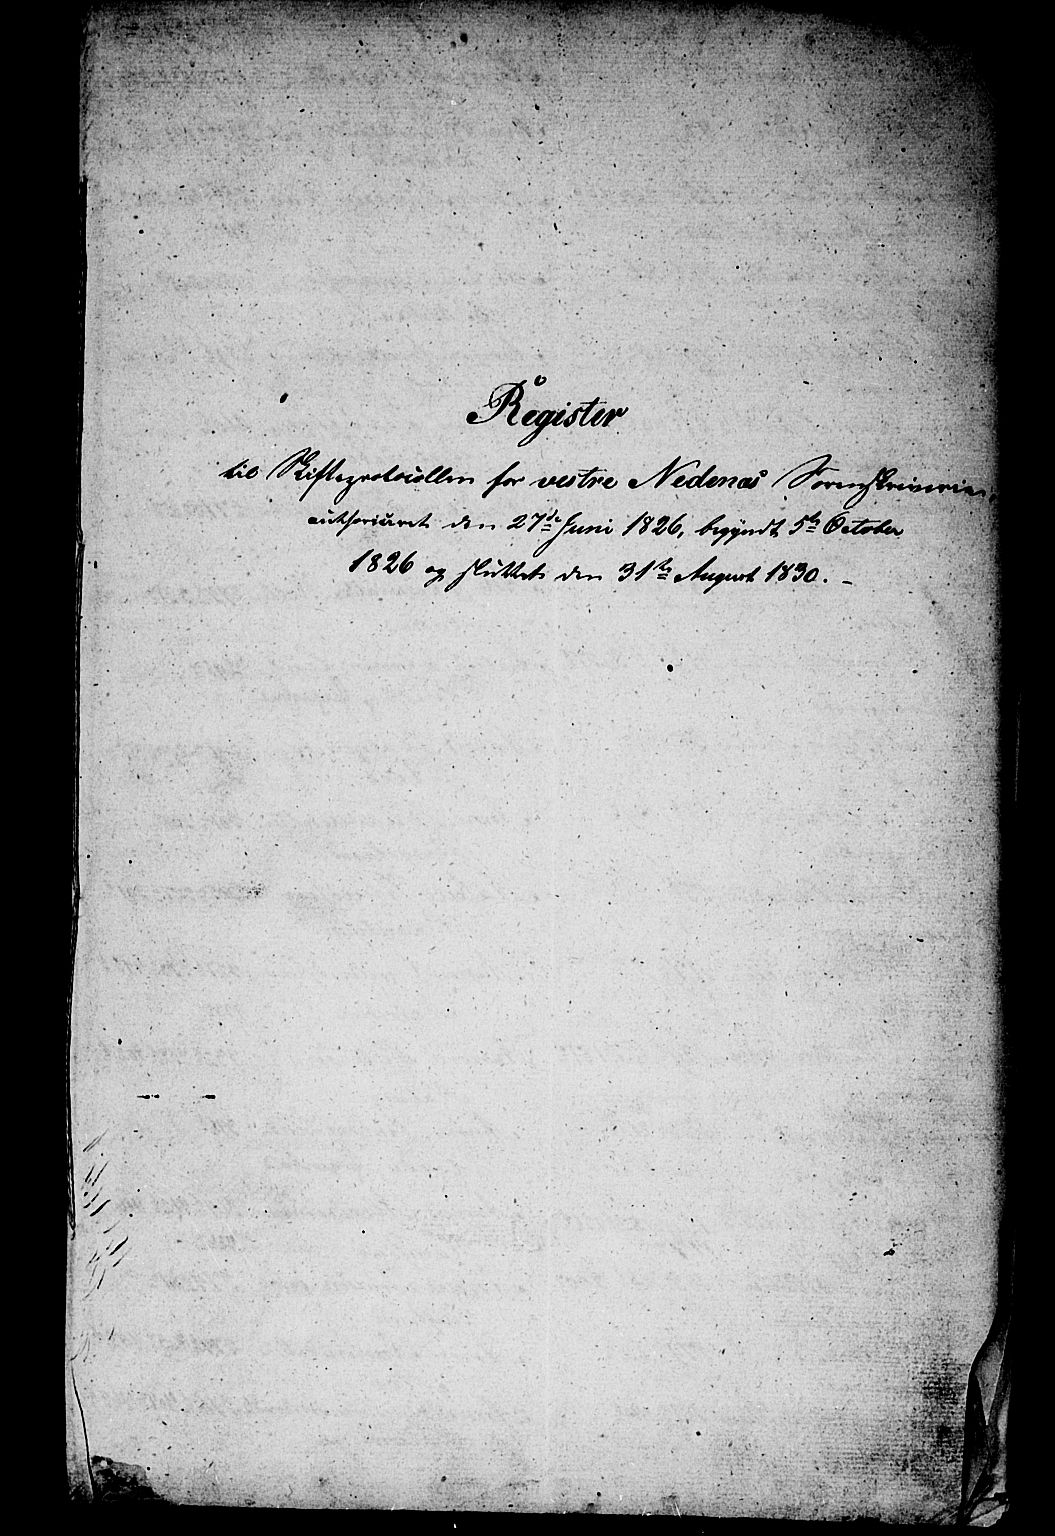 Register
til Skifteprotocollen for vestre Nedenæs Sorenskriverie,
authoriseret den 27de Juni 1826, begyndt 5te October
1826 og sluttet den 31te August 1830. –